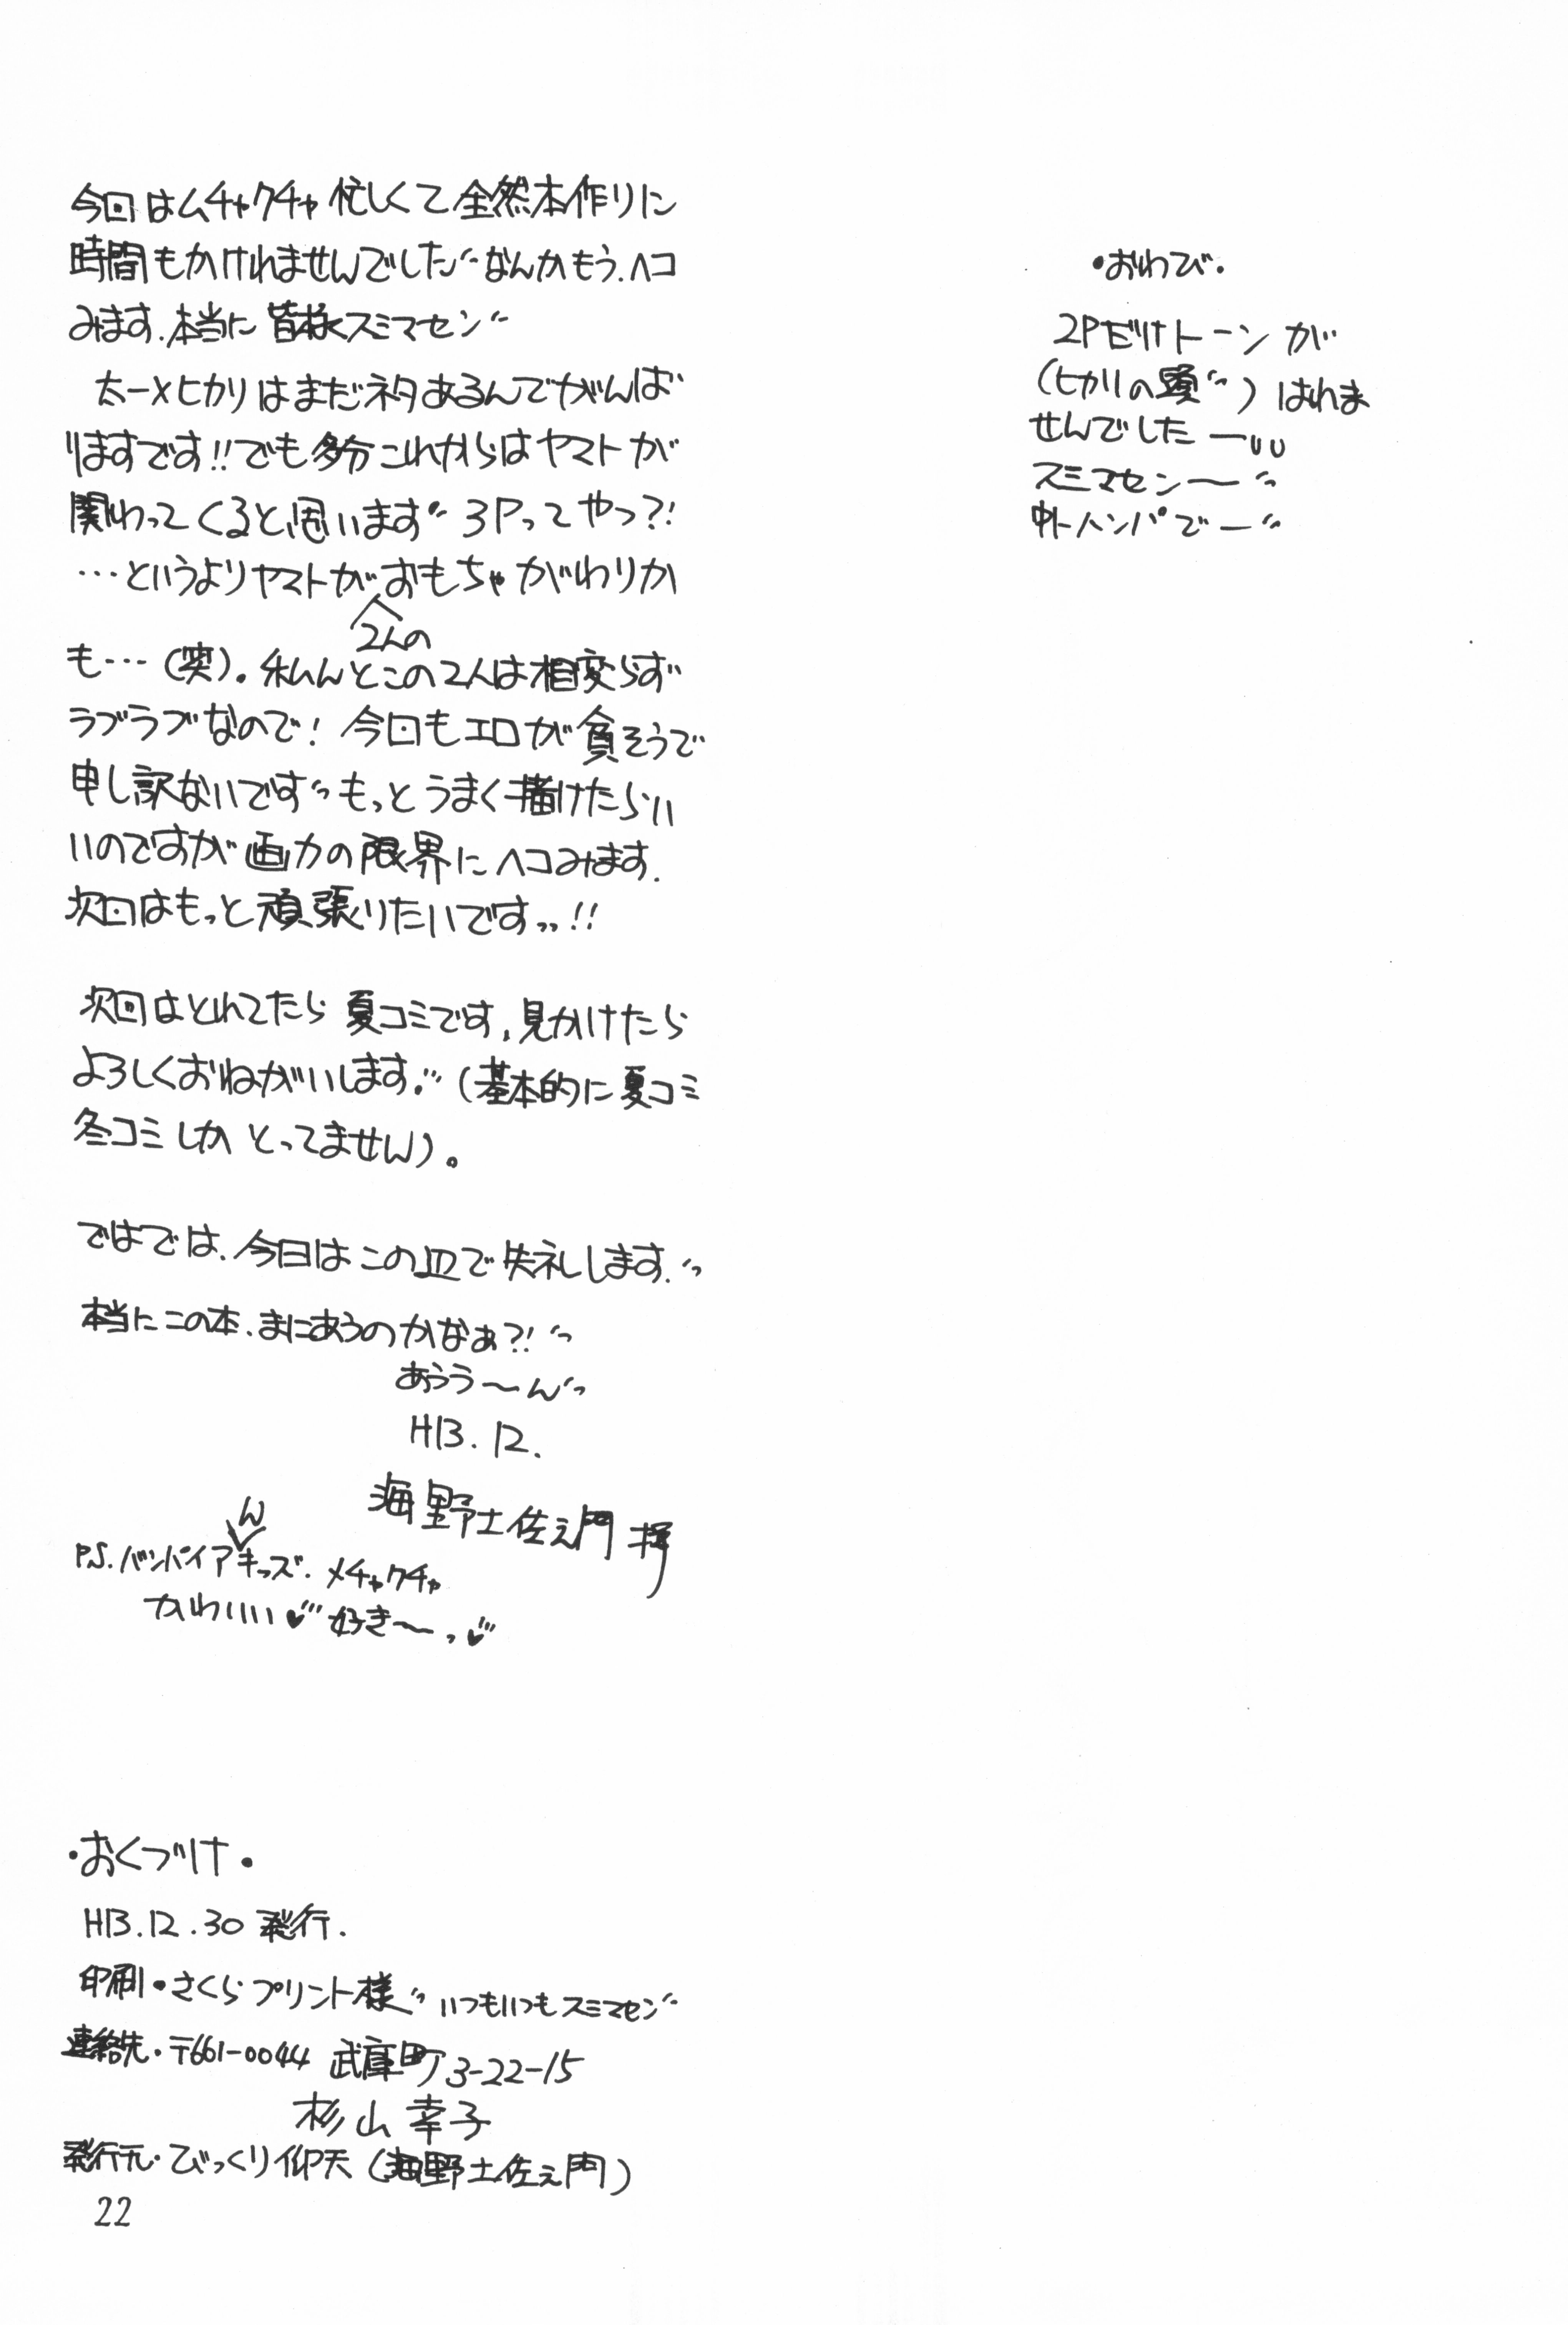 今回はムチャクチャ忙しくて全然本作りに
時間もかけれませんでした〃なんかもう.ヘコ
みます.本当に皆様スミマセン〃
太一×ヒカリはまだネタあるんでがんば
りますです!!でも多分これからはヤマトが
関わってくると思います〃3Pってやつ?!
…というよりヤマトが2人のおもちゃがわりか
も…(笑)。私んとこの2人は相変らず
ラブラブなので!今回もエロが貧そうで
申し訳ないですっもっとうまく描けたらい
いのですが画力の限界にヘコみます.
次回はもっと頑張りたいですっ!!
次回はとれてたら夏コミです.見かけたら
よろしくおねがいします.〃(基本的に夏コミ
冬コミしかとってません)。
ではでは.今日はこの辺で失礼します.っ
本当にこの本.まにあうのかなぁ?!っ
あうう〜んっ
H13.12.
海野土佐ェ門 拝
P.S.バンパイアンキッズ.メチャクチャ
かわいい♥好き〜っ♥
・おくづけ・
H13.12.30 発行.
印刷・さくらプリント様〃いつもいつもスミマセン〃
連絡先・〒661-0044 武庫町3-22-15
杉山幸子
発行元・びっくり仰天(海野土佐ェ門)
22
・おわび・
2Pだけトーンが
(ヒカリの頭〃)はれま
せんでしたー
スミマセン〜っ
中トハンパでー〃